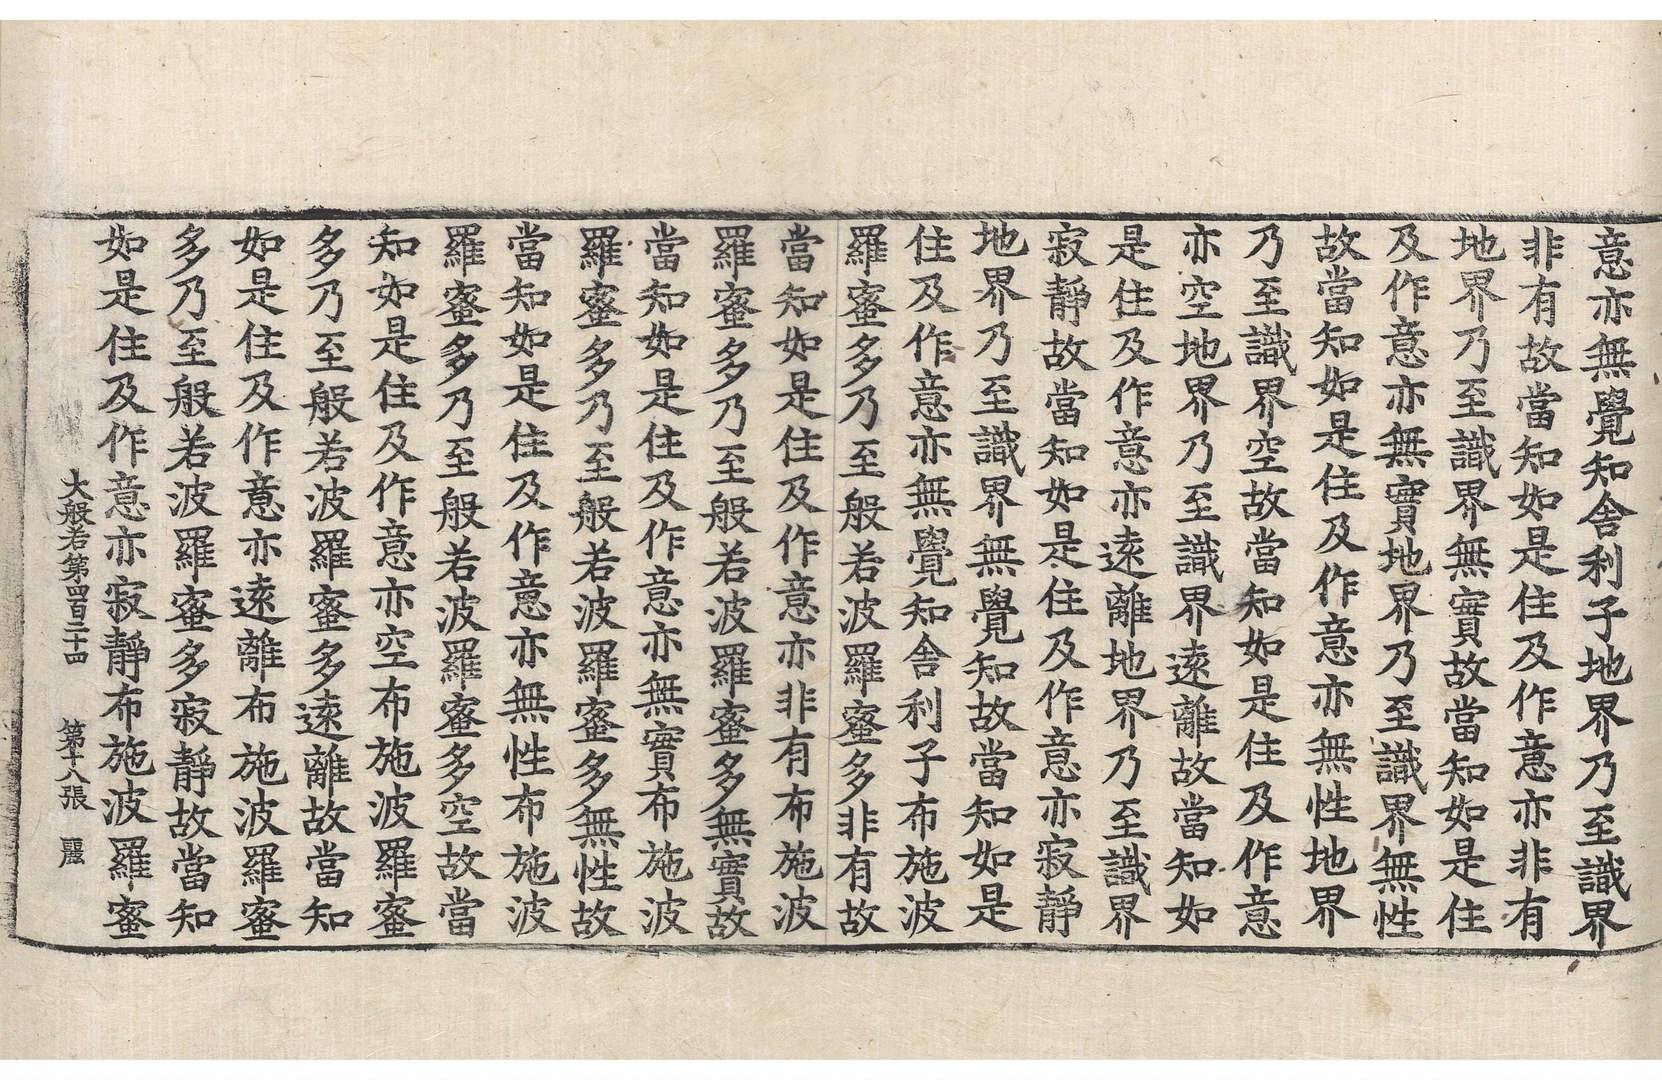 意亦無覺知舍利子地界乃至識界
非有故當知如是住及作意亦非有
地界乃至識界無實故當知如是住
及作意亦無實地界乃至識界無性
故當知如是住及作意亦無性地界
乃至識界空故當知如是住及作意
亦空地界乃至識界遠離故當知如
是住及作意亦遠離地界乃至識界
寂靜故當知如是住及作意亦寂靜
地界乃至識界無覺知故當知如是
住及作意亦無覺知舍利子布施波
羅蜜多乃至般若波羅蜜多非有故
當知如是住及作意亦非有布施波
羅蜜多乃至般若波羅蜜多無實故
當知如是住及作意亦無實布施波
羅蜜多乃至般若波羅蜜多無性故
當知如是住及作意亦無性布施波
羅蜜多乃至般若波羅蜜多空故當
知如是住及作意亦空布施波羅蜜
多乃至般若波羅蜜多遠離故當知
如是住及作意亦遠離布施波羅蜜
多乃至般若波羅蜜多寂靜故當知
如是住及作意亦寂靜布施波羅蜜
大般若第四百二十四 第十八張 麗